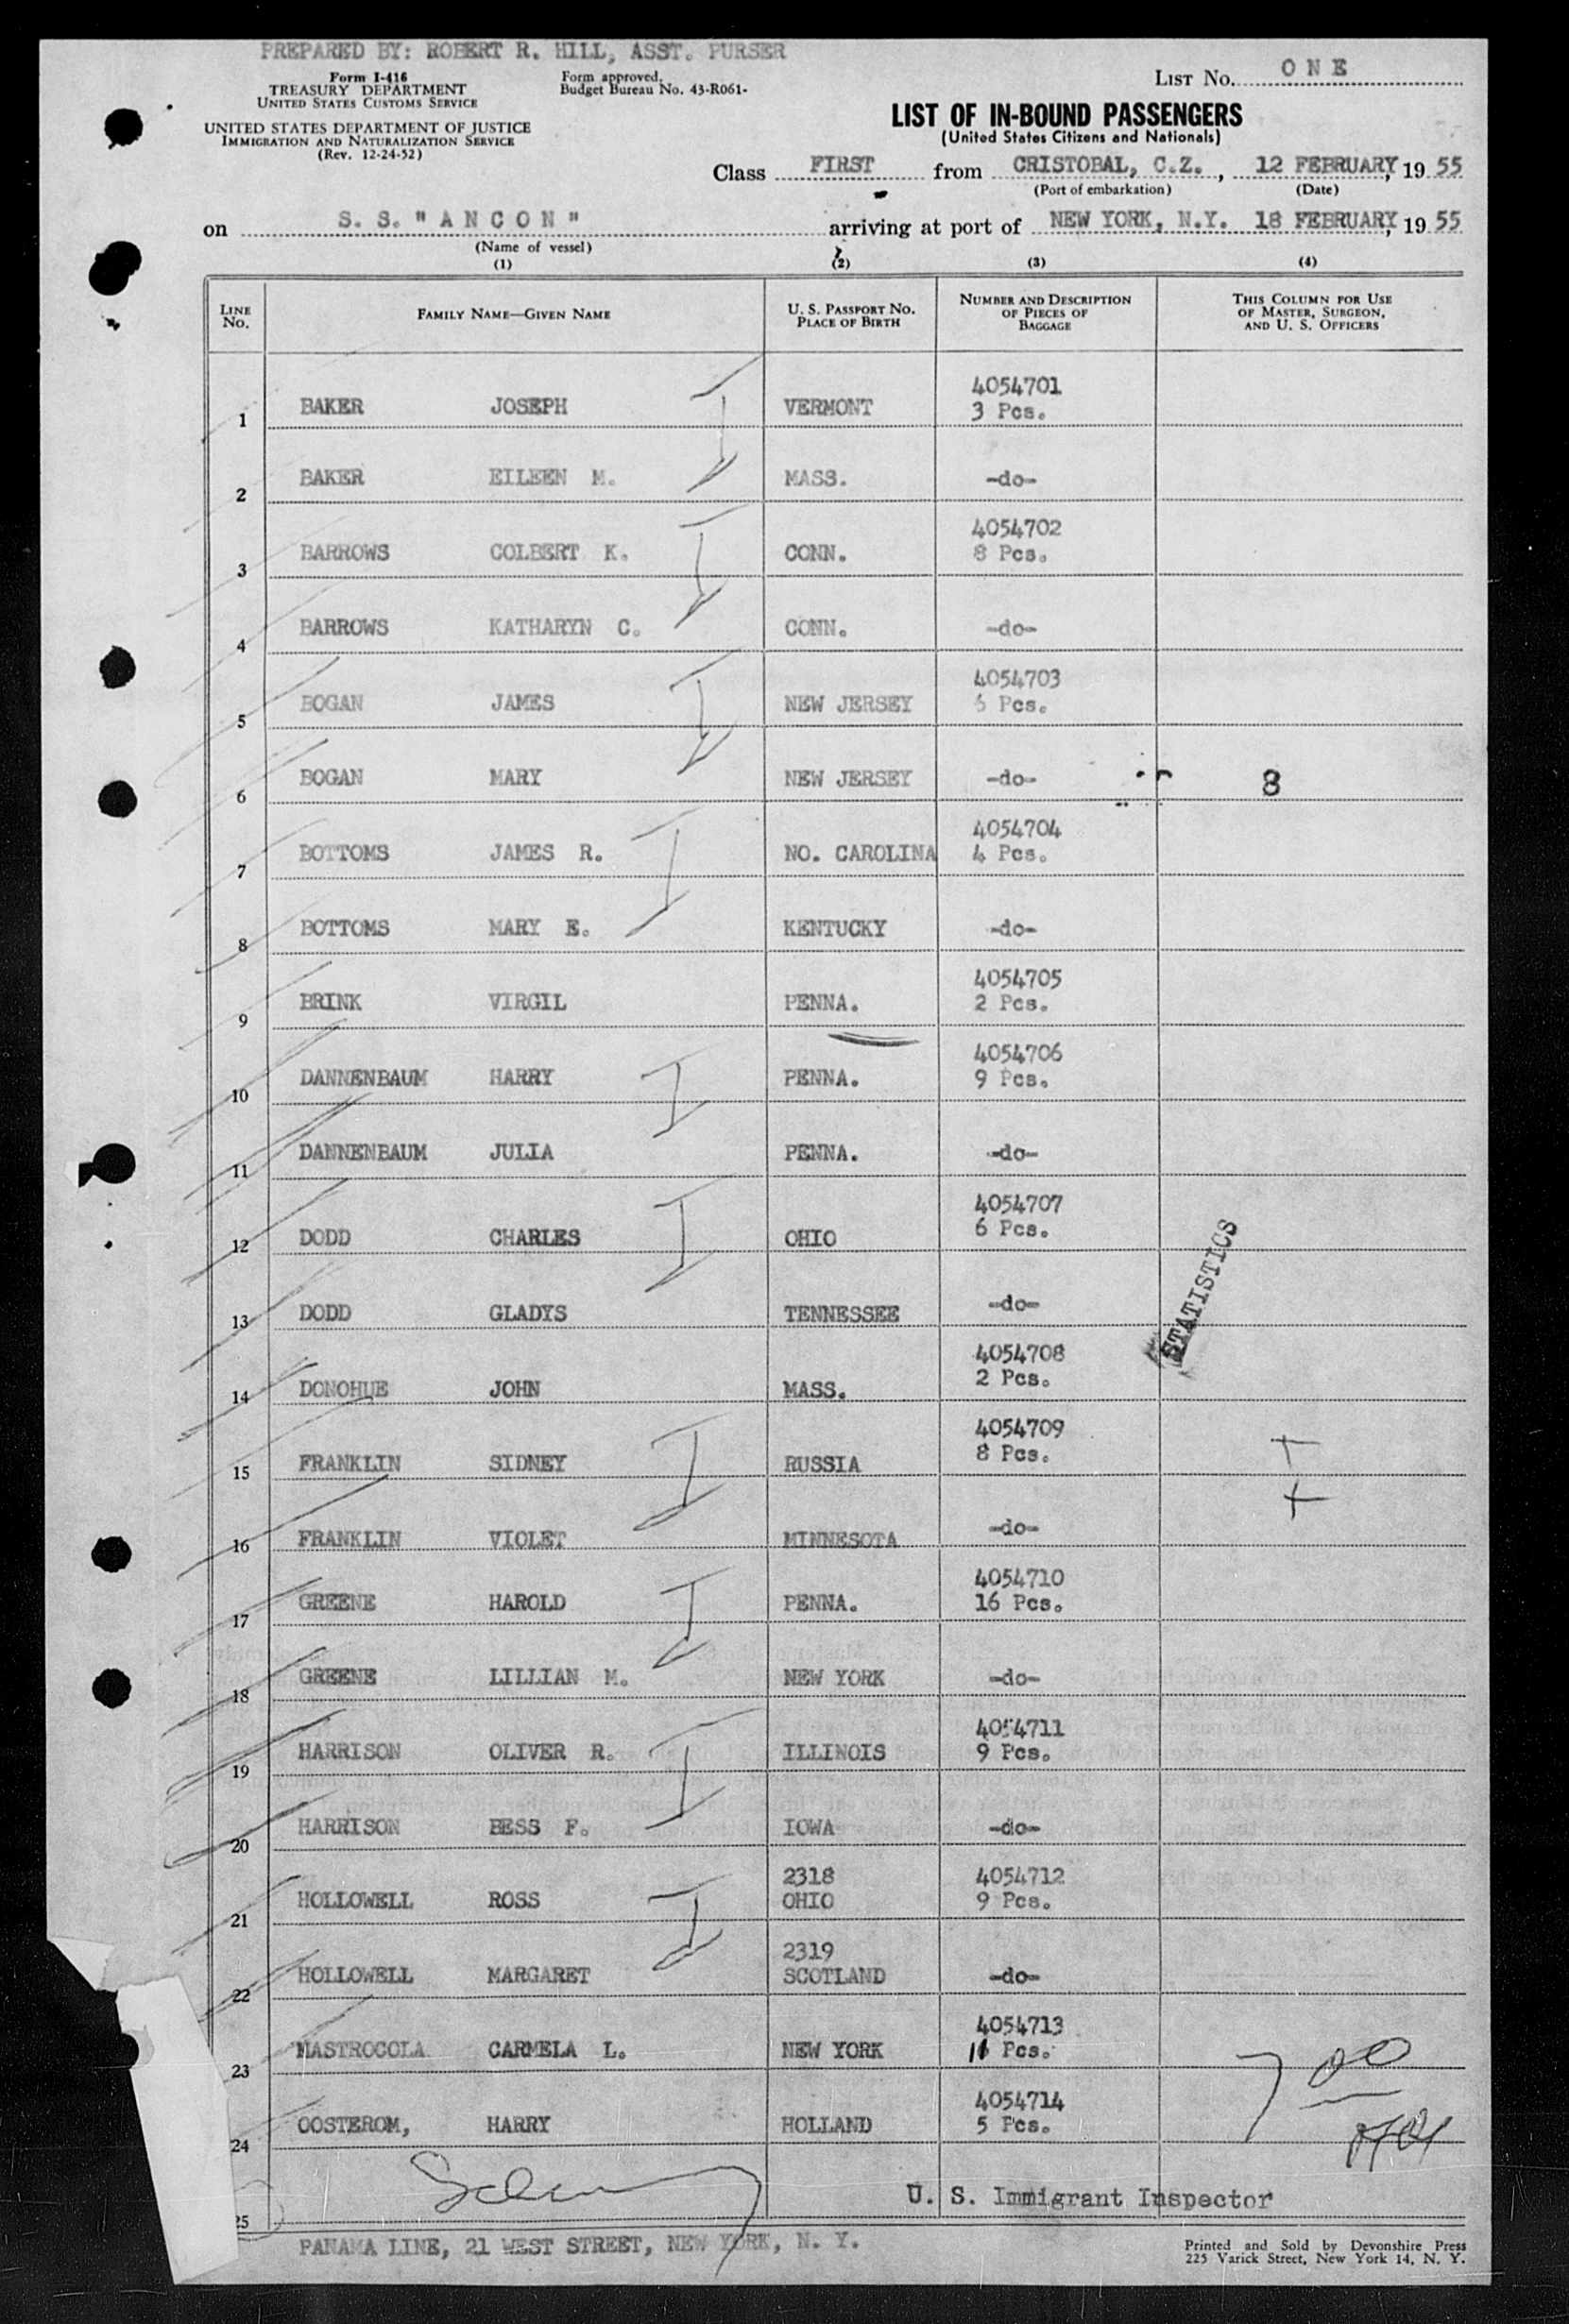 PREPARED BY: ROBERT R. HILL, ASST. PURSER
Form I-416
TREASURY DEPARTMENT
UNITED STATES CUSTOMS SERVICE
UNITED STATES DEPARTMENT OF JUSTICE
IMMIGRATION AND NATURALIZATION SERVICE
(Rev. 12-24-52)
Form approved.
Budget Bureau No. 43-R061-
LIST NO. ONE
LIST OF IN-BOUND PASSENGERS
(United States Citizens and Nationals)
Class FIRST from CRISTOBAL, C.Z., 12 FEBRUARY, 1955
(Port of embarkation) (Date)
on S. S. "ANCON" arriving at port of NEW YORK, N.Y. 18 FEBRUARY, 1955
(Name of vessel)
(1) (2) (3) (4)
LINE NO. FAMILY NAME—GIVEN NAME U. S. PASSPORT NO. PLACE OF BIRTH NUMBER AND DESCRIPTION OF PIECES OF BAGGAGE THIS COLUMN FOR USE OF MASTER, SURGEON, AND U. S. OFFICERS
4054701
1 BAKER JOSEPH VERMONT 3 Pcs.
2 BAKER EILEEN M. MASS. -do-
4054702
3 BARROWS COLBERT K. CONN. 8 Pcs.
4 BARROWS KATHARYN C. CONN. -do-
4054703
5 BOGAN JAMES NEW JERSEY 6 Pcs.
6 BOGAN MARY NEW JERSEY -do- 8
4054704
7 BOTTOMS JAMES R. NO. CAROLINA 4 Pcs.
8 BOTTOMS MARY E. KENTUCKY -do-
4054705
9 BRINK VIRGIL PENNA. 2 Pcs.
4054706
10 DANNENBAUM HARRY PENNA. 9 Pcs.
11 DANNENBAUM JULIA PENNA. -do-
4054707
12 DODD CHARLES OHIO 6 Pcs.
13 DODD GLADYS TENNESSEE -do-
STATISTICS
4054708
14 DONOHUE JOHN MASS. 2 Pcs.
4054709
15 FRANKLIN SIDNEY RUSSIA 8 Pcs.
16 FRANKLIN VIOLET MINNESOTA -do-
4054710
17 GREENE HAROLD PENNA. 16 Pcs.
18 GREENE LILLIAN M. NEW YORK -do-
4054711
19 HARRISON OLIVER R. ILLINOIS 9 Pcs.
20 HARRISON BESS F. IOWA -do-
2318 4054712
21 HOLLOWELL ROSS OHIO 9 Pcs.
2319
22 HOLLOWELL MARGARET SCOTLAND -do-
4054713
23 MASTROCOLA CARMELA L. NEW YORK 11 Pcs.
4054714
24 OOSTEROM, HARRY HOLLAND 5 Pcs.
U. S. Immigrant Inspector
25
PANAMA LINE, 21 WEST STREET, NEW YORK, N. Y.
Printed and Sold by Devonshire Press
225 Varick Street, New York 14, N. Y.